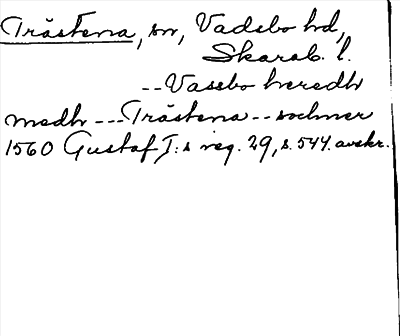 Trästena, sn, Vadsbo hd,
Skarab. l.
-- Vassbo heredh
medh --- Trästena -- sochner
1560 Gustaf I:s reg. 29, s. 544. avskr.